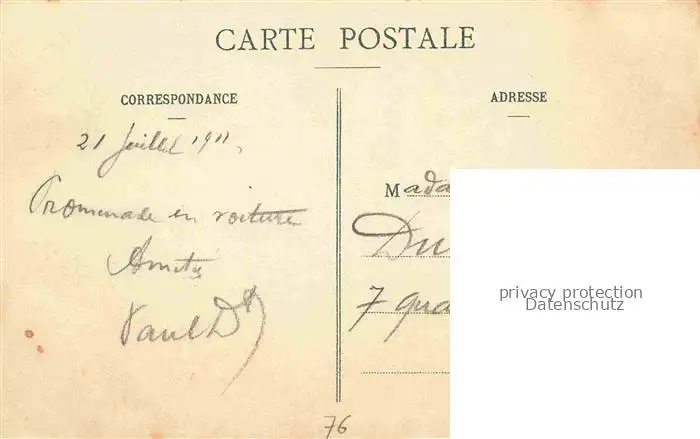 CARTE POSTALE
CORRESPONDANCE
ADRESSE
21 Juillet 1911,
Promenade en voiture
Amitiés
Paul D
Mada
Du
7 qua
privacy protection
Datenschutz
76